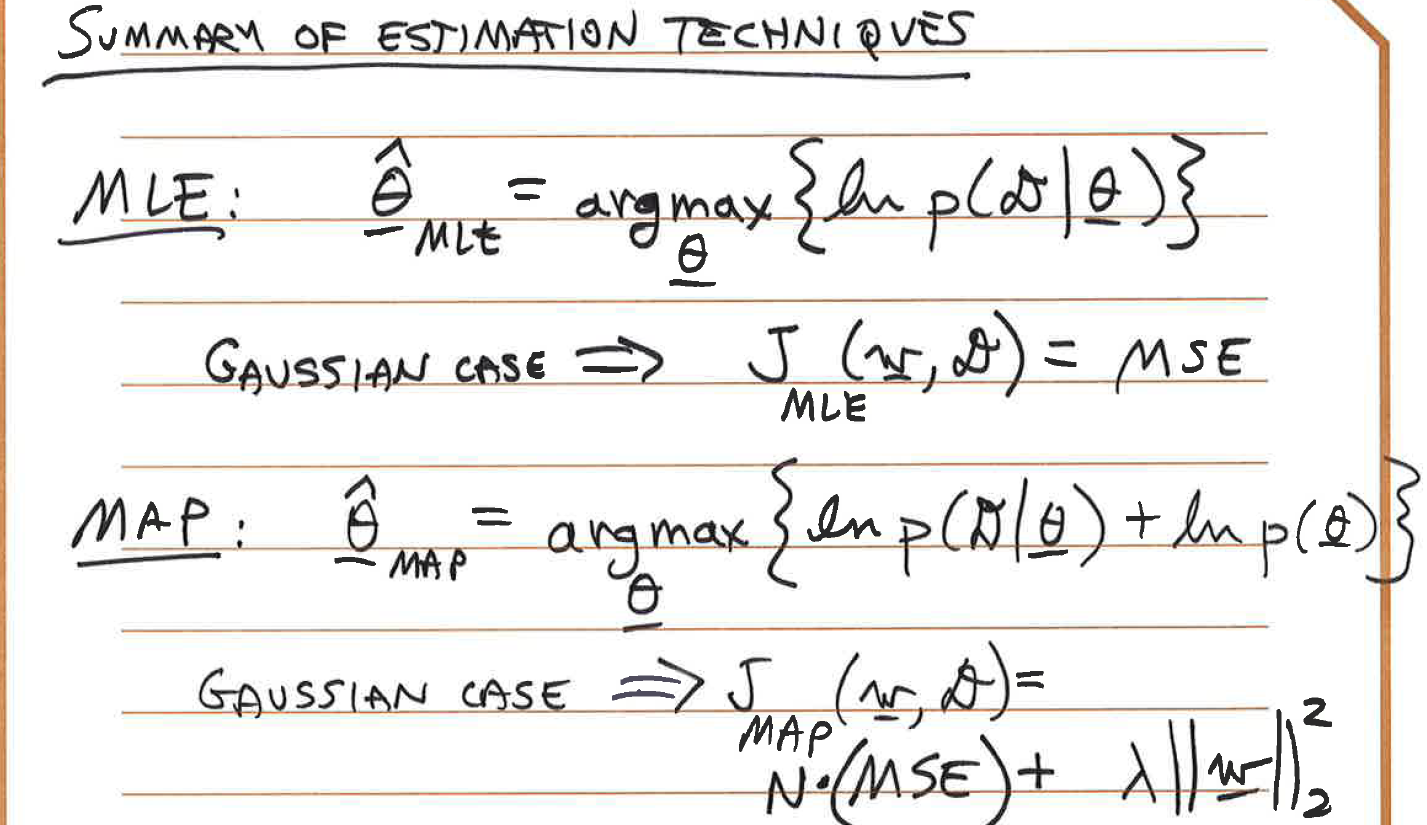 SUMMARY OF ESTIMATION TECHNIQUES
MLE: θ̂_MLE = argmax_θ {ln p(𝒟|θ)}
GAUSSIAN CASE ⟹ J_MLE (w, 𝒟) = MSE
MAP: θ̂_MAP = argmax_θ {ln p(𝒟|θ) + ln p(θ)}
GAUSSIAN CASE ⟹ J_MAP (w, 𝒟) =
N·(MSE) + λ‖w‖₂²